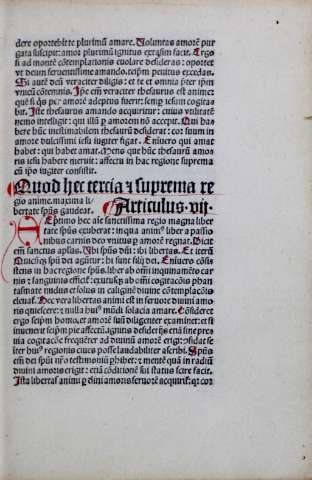 dere oportebit te plurimũ amare. Voluntas amorē pur
gata suscipit: amor plurimũ ignitus extasim facit. Ergo
si ad montē cõtemplationis euolare desideras: oportet
vt deum feruentissime amando teipm̃ penitus excedas.
Si autē deũ veraciter diligis: et te et omnia ppter ip̃m
viuēs cõtemnis. Ip̃e em̃ veraciter thesaurus est anime:
quē si q̃s per amorē adeptus fuerit: semp iesum cogita
bit. Iste thesaurus amando acquiritur: cuius vtilitatē
nemo intelligit: qui illũ p amorem nõ accepit. Qui ha
bere hũc inestimabilem thesaurũ desiderat: cor suum in
amore dulcissimi iesu iugiter figat. Eniuero qui amat
habet: qui habet amat. Mens que hũc thesaurũ amo
ris iesu habere meruit: affectu in hac regione suprema
cũ ipo iugiter consistit.
Quod hec tercia ⁊ suprema re
gio anime. maxima li
bertate spũs gaudeat. Articulus .vij.
Eptimo hec aĩe sanctissima regio magna liber
tate spũs exuberat: in qua animꝰ liber a passio
nibus carnis deo vnitus p amorē regnat. Dicit
em̃ sanctus apl̃us. Vbi spũs dñi: ibi libertas. Et iterũ
Quicũq̃ spũ dei agũtur: hi sunt filij dei. Eniuero cõsi
stens in hac regione spũs. liber ab om̃i inquinamẽto car
nis ⁊ sanguinis efficit̃: exutusq̃ ab om̃i cogitacõis phan
tasmate nudus et solus in caligine diuine cõtemplacõis
eleuat̃. Hec vera libertas animi est in feruore diuini amo
ris quiescere: ⁊ nulla huiꝰ mũdi solacia amare. Cõsideret
ergo seip̃m homo. et amorē suũ diligenter examinet: et si
inuenerit seip̃m pie affectũ. ignitis desiderijs etiã sine pre
uia cogitacõne frequẽter ad diuinũ amorē erigi: cõfidat se
iter huiꝰ regionis cuius posse laudabiliter ascribi. Spũs
em̃ dei spũi nr̃o testimoniũ phibet: ⁊ mentẽ quã in radiũ
diuini amoris erigit: etiã cõditionẽ sui status scire facit.
Ista libertas animi p diuini amoris feruorẽ acquirit̃: qr̃ cor